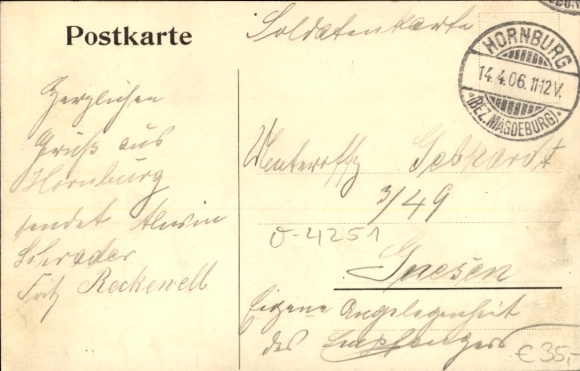 Postkarte
Soldatenkarte
HORNBURG
14.4.06.11-12V.
*(BEZ. MAGDEBURG)*
Herzlichen
Gruß aus
Hornburg
sendet Alwin
Schrader
Fritz Reckewell
Unteroffz Gebhardt
3/49
O-4251
Gnesen
Eigene Angelegenheit
des Empfängers
€35,-